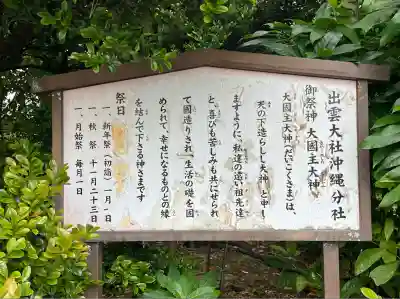 出雲大社沖縄分社
御祭神 大國主大神
大國主大神(だいこくさま)は、
天の下造らしし大神と申し
ますように、私達の遠い祖先達
と、喜びも苦しみも共にせられ
て國造りされ、生活の礎を固
められて、幸せになるもとの縁
を結んで下さる神さまです
祭日
一、新年祭(初詣)一月一日
一、秋祭 十一月二十三日
一、月始祭 毎月一日